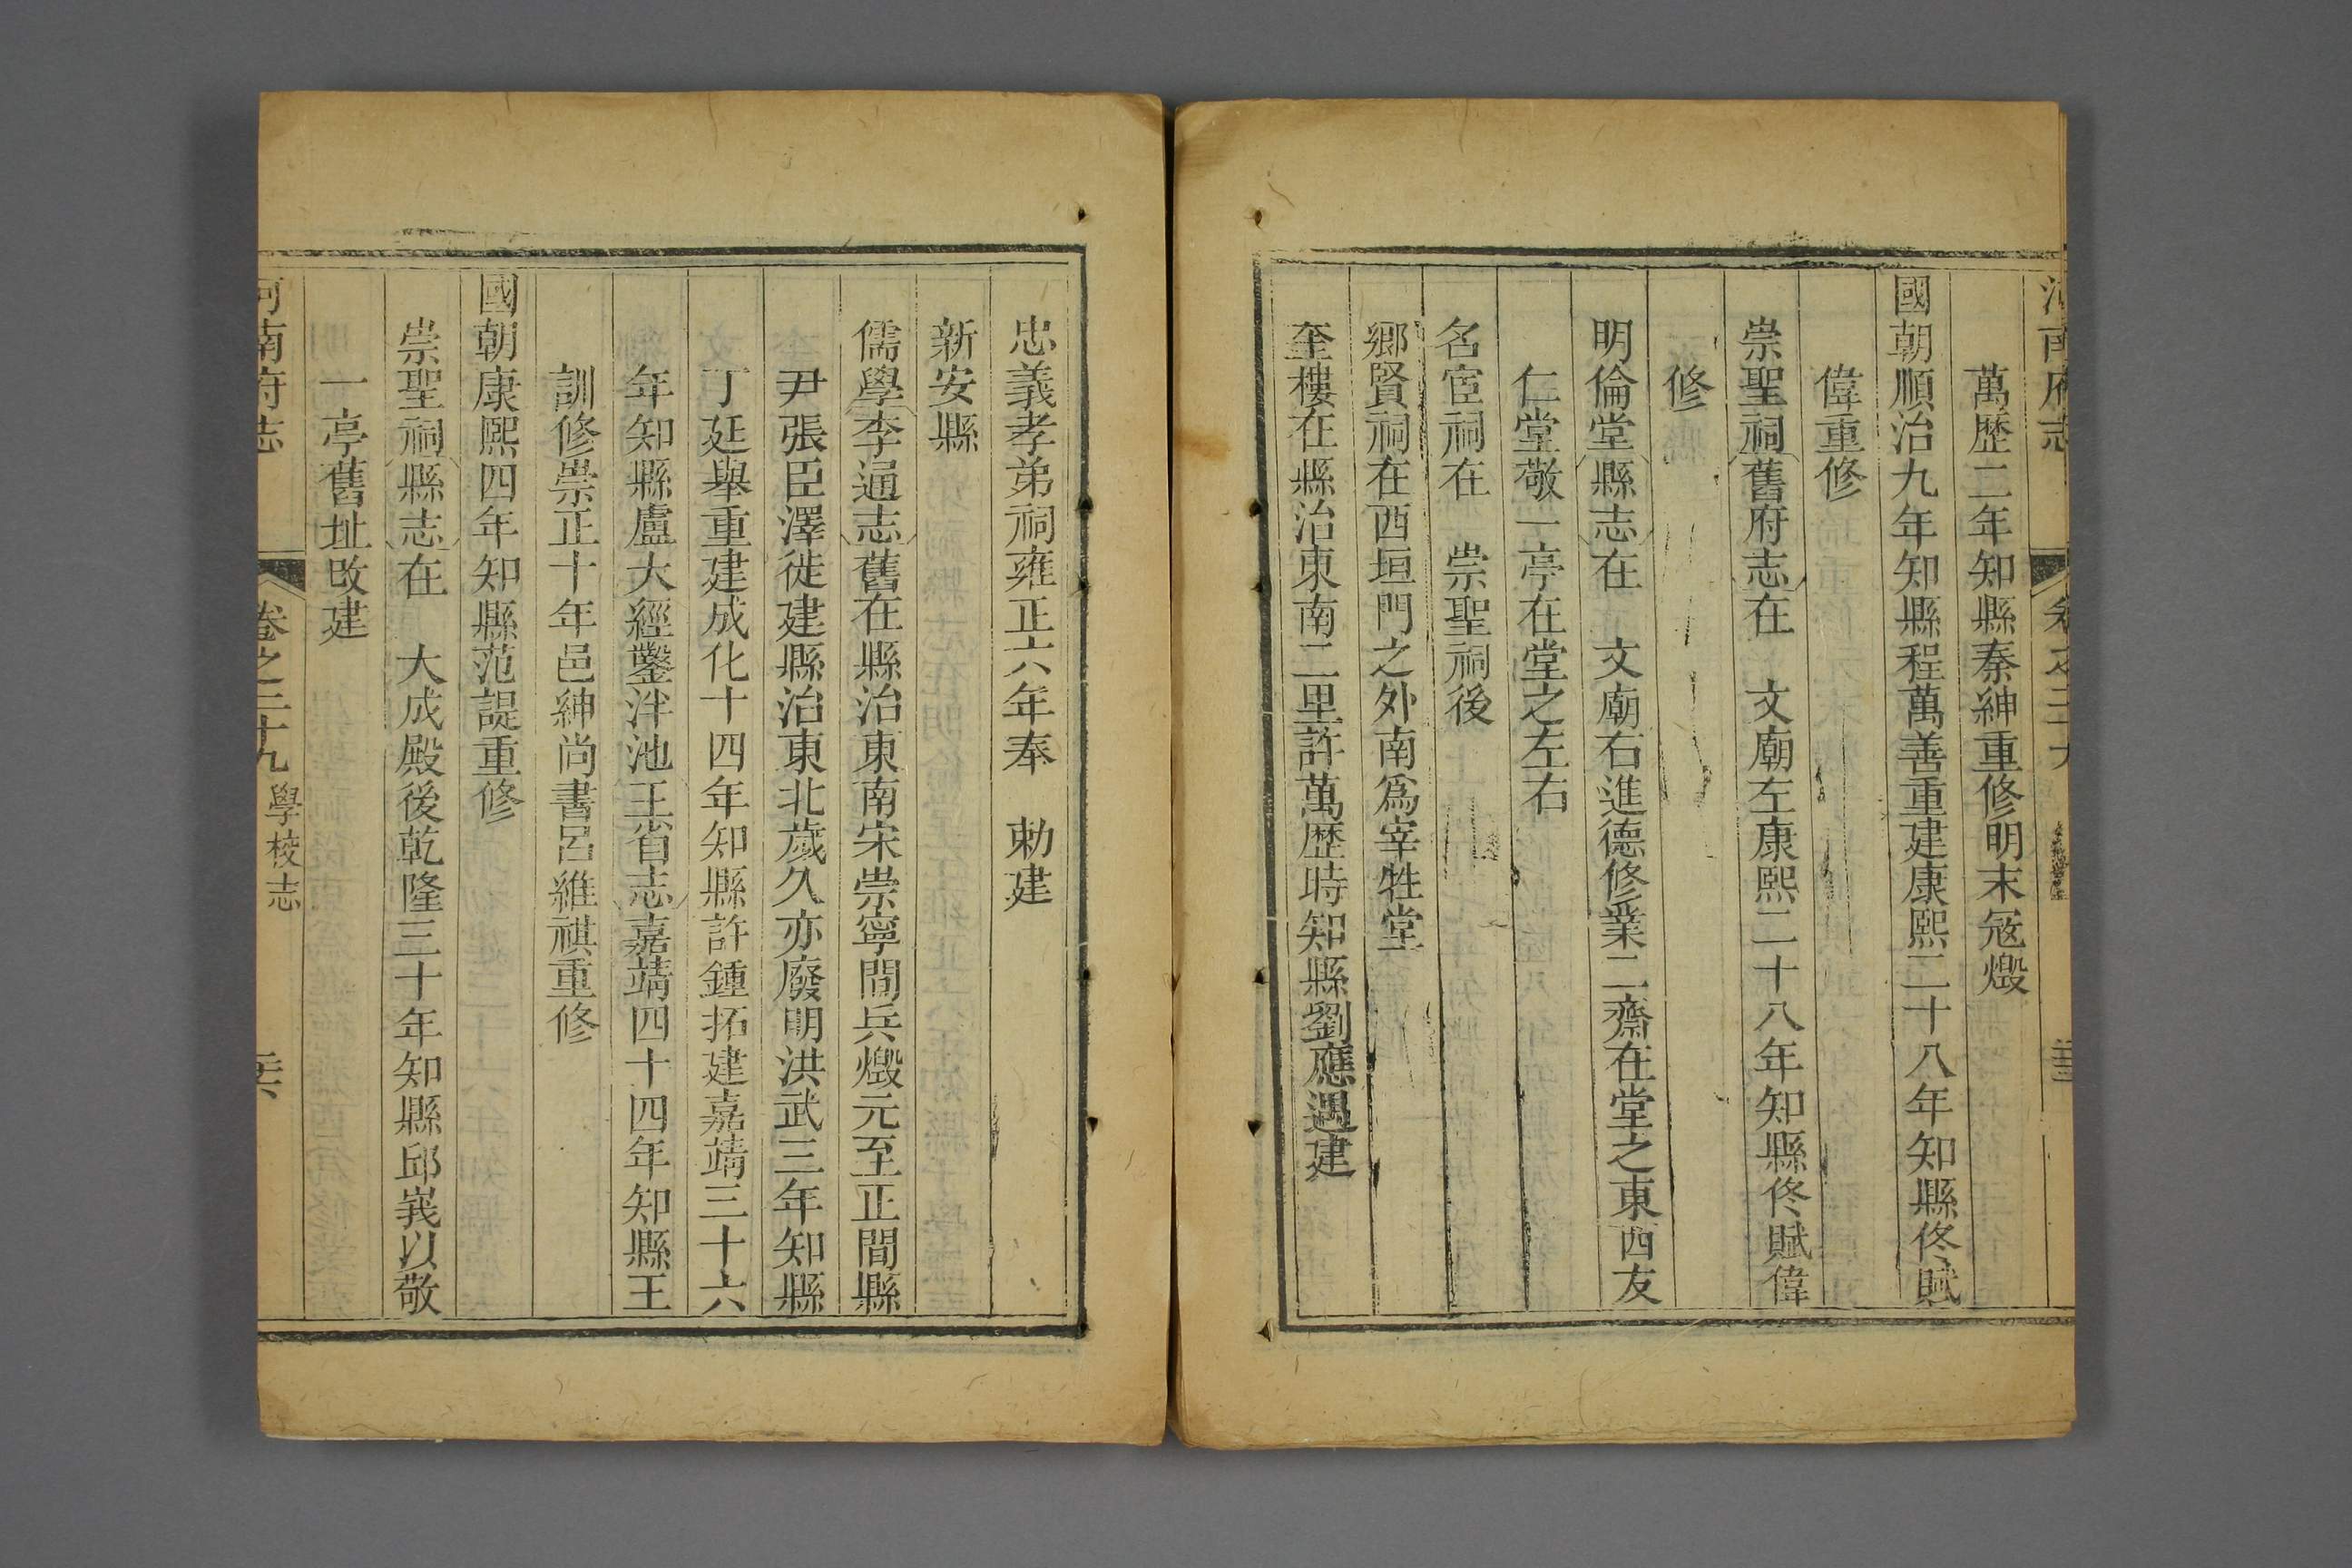 河南府志
萬歷二年知縣秦紳重修明末冦燬
國朝順治九年知縣程萬善重建康熙二十八年知縣佟賦
偉重修
崇聖祠舊府志在　文廟左康熙二十八年知縣佟賦偉
修
明倫堂縣志在　文廟右進德修業二齋在堂之東西友
仁堂敬一亭在堂之左右
名宦祠在　崇聖祠後
鄉賢祠在西垣門之外南爲宰牲堂
奎樓在縣治東南二里許萬歷時知縣劉應遇建
忠義孝弟祠雍正六年奉　勅建
新安縣
儒學李通志舊在縣治東南宋崇寧間兵燬元至正間縣
尹張臣澤徙建縣治東北歲久亦廢明洪武三年知縣
丁延舉重建成化十四年知縣許鍾拓建嘉靖三十六
年知縣盧大經鑿泮池王省志嘉靖四十四年知縣王
訓修崇正十年邑紳尚書呂維祺重修
國朝康熙四年知縣范諟重修
崇聖祠縣志在　大成殿後乾隆三十年知縣邱峩以敬
一亭舊址改建
河南府志　卷之二十九　學校志